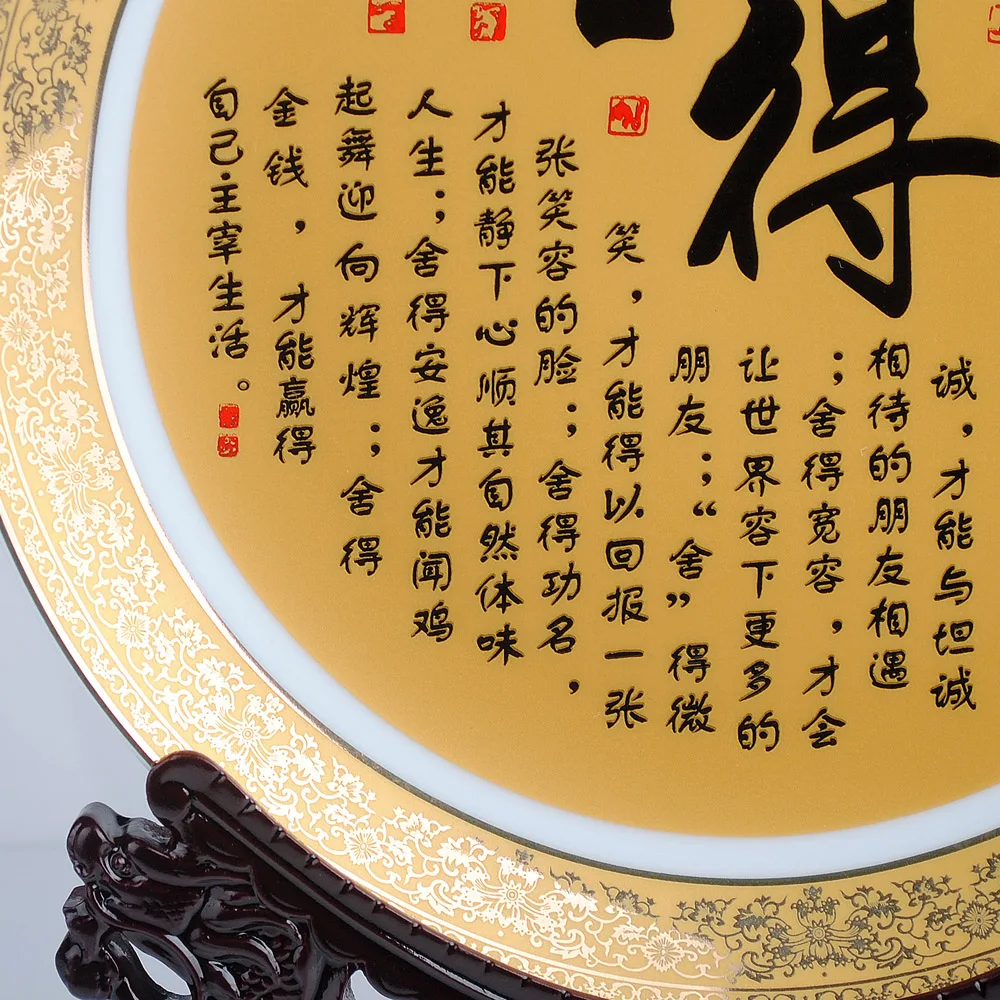 得
诚，才能与坦诚
相待的朋友相遇
；舍得宽容，才会
让世界容下更多的
朋友；“舍”得微
笑，才能得以回报一张
张笑容的脸；舍得功名，
才能静下心顺其自然体味
人生；舍得安逸才能闻鸡
起舞迎向辉煌；舍得
金钱，才能赢得
自己主宰生活。